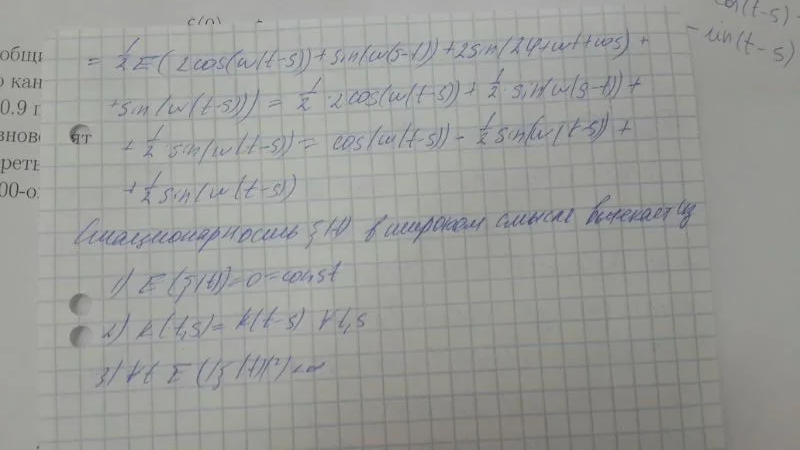 общи
о кан
0.9 г
зно
реть
00-о
ят
= 1/2 E(2cos(w(t-s)) + sin(w(s-t)) + 2sin(2φ+wt+ws) +
+ sin(w(t-s))) = 1/2 · 2cos(w(t-s)) + 1/2 · sin(w(s-t)) +
+ 1/2 · sin(w(t-s)) = cos(w(t-s)) - 1/2 sin(w(t-s)) +
+ 1/2 sin(w(t-s))
Стационарность ξ(t) в широком смысле вытекает из
1) E(ξ(t)) = 0 = const
2) K(t,s) = K(t-s) ∀t,s
3) ∀t E(|ξ(t)|²) < ∞
cos(t-s)
- sin(t-s)